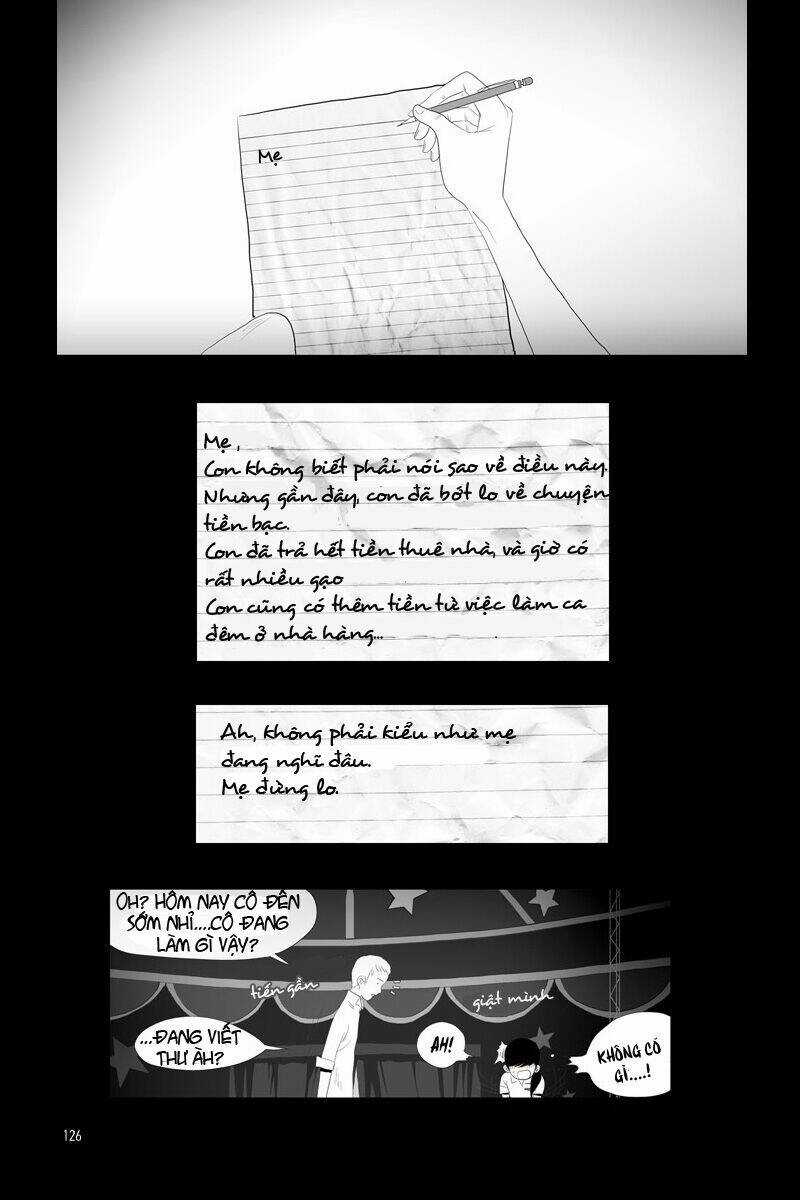 Mẹ
Mẹ,
Con không biết phải nói sao về điều này.
Nhưng gần đây, con đã bớt lo về chuyện
tiền bạc.
Con đã trả hết tiền thuê nhà, và giờ có
rất nhiều gạo
Con cũng có thêm tiền từ việc làm ca
đêm ở nhà hàng...
Ah, không phải kiểu như mẹ
đang nghĩ đâu.
Mẹ đừng lo.
OH? HÔM NAY CÔ ĐẾN
SỚM NHỈ....CÔ ĐANG
LÀM GÌ VẬY?
tiến gần
giật mình
...ĐANG VIẾT
THƯ ÀH?
AH!
KHÔNG CÓ
GÌ....!
126